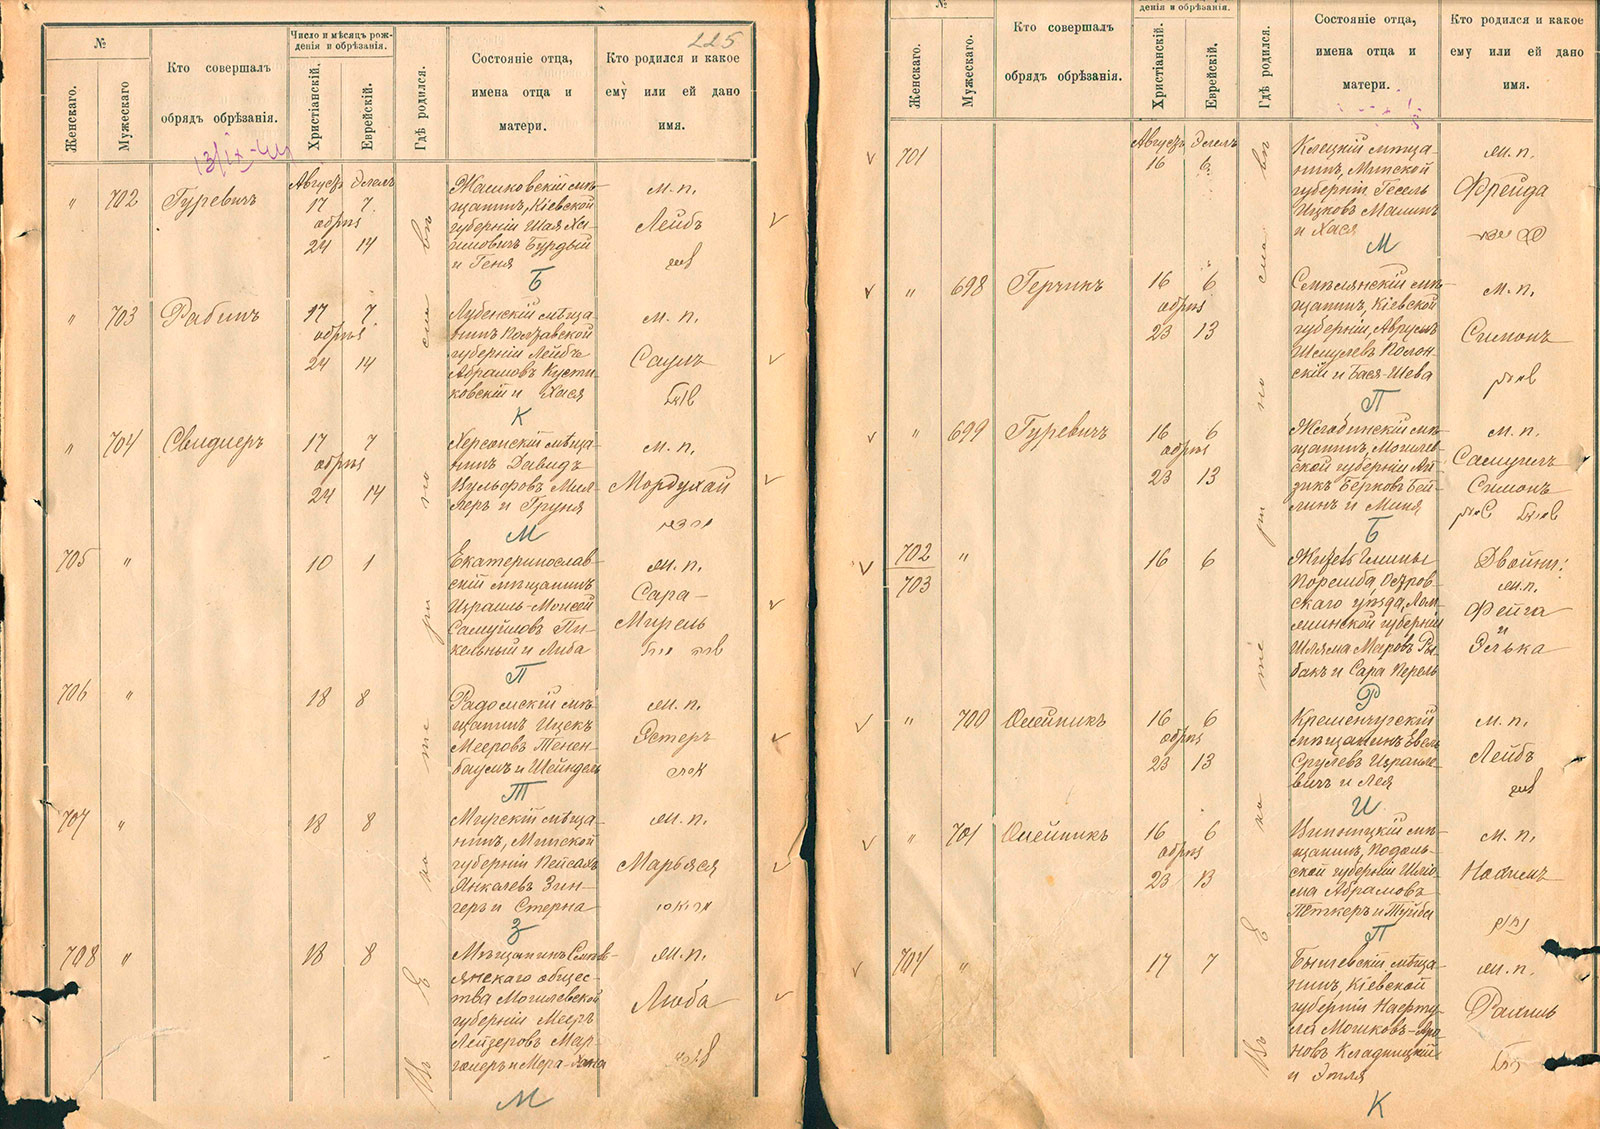 225
№
Женскаго.
Мужескаго
Кто совершалъ
обрядъ обрѣзанія.
Число и мѣсяцъ рож-
денія и обрѣзанія.
Христіанскій.
Еврейскій.
Гдѣ родился.
Состояніе отца,
имена отца и
матери.
Кто родился и какое
ему или ей дано
имя.
13/IX-44
Августъ Элелъ
„ 702 Гуревичъ 17 7
обрѣз
24 14
Жашковскій мѣ-
щанинъ, Кіевской
губерніи Шая Ха-
имовичъ Бурдый
и Геня
м. п.
Лейбъ
Б
„ 703 Рабинъ 17 7
обрѣз
24 14
Лубенскій мѣща-
нинъ Полтавской
губерніи Лейбъ
Абрамовъ Кусти-
ковскій и Хася
м. п.
Саулъ
К
„ 704 Свидлеръ 17 7
обрѣз
24 14
Херсонскій мѣща-
нинъ Давидъ
Вульфовъ Мил-
леръ и Груня
м. п.
Мордухай
М
705 „ 10 1
Екатеринослав-
скій мѣщанинъ
Израиль-Моисей
Самуиловъ Пи-
кельный и Либа
м. п.
Сара-
Мирель
П
706 „ 18 8
Радомскій мѣ-
щанинъ Ицекъ
Мееровъ Тенен-
баумъ и Шейндель
м. п.
Эстеръ
Т
707 „ 18 8
Мирскій мѣща-
нинъ, Минской
губерніи Пейсахъ
Янкелевъ Зин-
геръ и Стерна
м. п.
Марьяся
З
708 „ 18 8
Мѣщанинъ
янскаго общес-
тва Могилевской
губерніи Мееръ
Лейзеровъ Мар-
голеръ и Мера-Хана
м. п.
Люба
М
№
Женскаго.
Мужескаго.
Кто совершалъ
обрядъ обрѣзанія.
денія и обрѣзанія.
Христіанскій.
Еврейскій.
Гдѣ родился.
Состояніе отца,
имена отца и
матери.
Кто родился и какое
ему или ей дано
имя.
Августъ Элелъ
701 16 6
Клецкій мѣща-
нинъ, Минской
губерніи Гесель
Ицковъ Малинъ
и Хася
м. п.
Фрейда
М
„ 698 Герчикъ 16 6
обрѣз
23 13
Смѣлянскій мѣ-
щанинъ, Кіевской
губерніи, Аврумъ
Шмулевъ Полон-
скій и Бася-Шева
м. п.
Симонъ
П
„ 699 Гуревичъ 16 6
обрѣз
23 13
мѣ-
щанинъ, Могилев-
ской губерніи Ай-
зикъ Берковъ Бей-
линъ и Миня
м. п.
Самуилъ
Симонъ
Б
702
703 „ 16 6
Житель гмины
Поремба, Остров-
скаго уѣзда, Лом-
жинской губерніи
Шляма Меировъ Ры-
бакъ и Сара Перель
Двойни:
м. п.
Фейга
и
Элька
Р
„ 700 Олейникъ 16 6
обрѣз
23 13
Кременчугскій
мѣщанинъ Евель
Срулевъ Израиле-
вичъ и Лея
м. п.
Лейбъ
И
„ 701 Олейникъ 16 6
обрѣз
23 13
мѣ-
щанинъ, Подоль-
ской губерніи Шлю-
ма Абрамовъ
Петкеръ и Туйба
м. п.
Нахимъ
П
704 „ 17 7
Бышевскій мѣща-
нинъ, Кіевской
губерніи
Мошковъ-Аро-
новъ Кладницкій
и Этля
м. п.
Рахиль
К